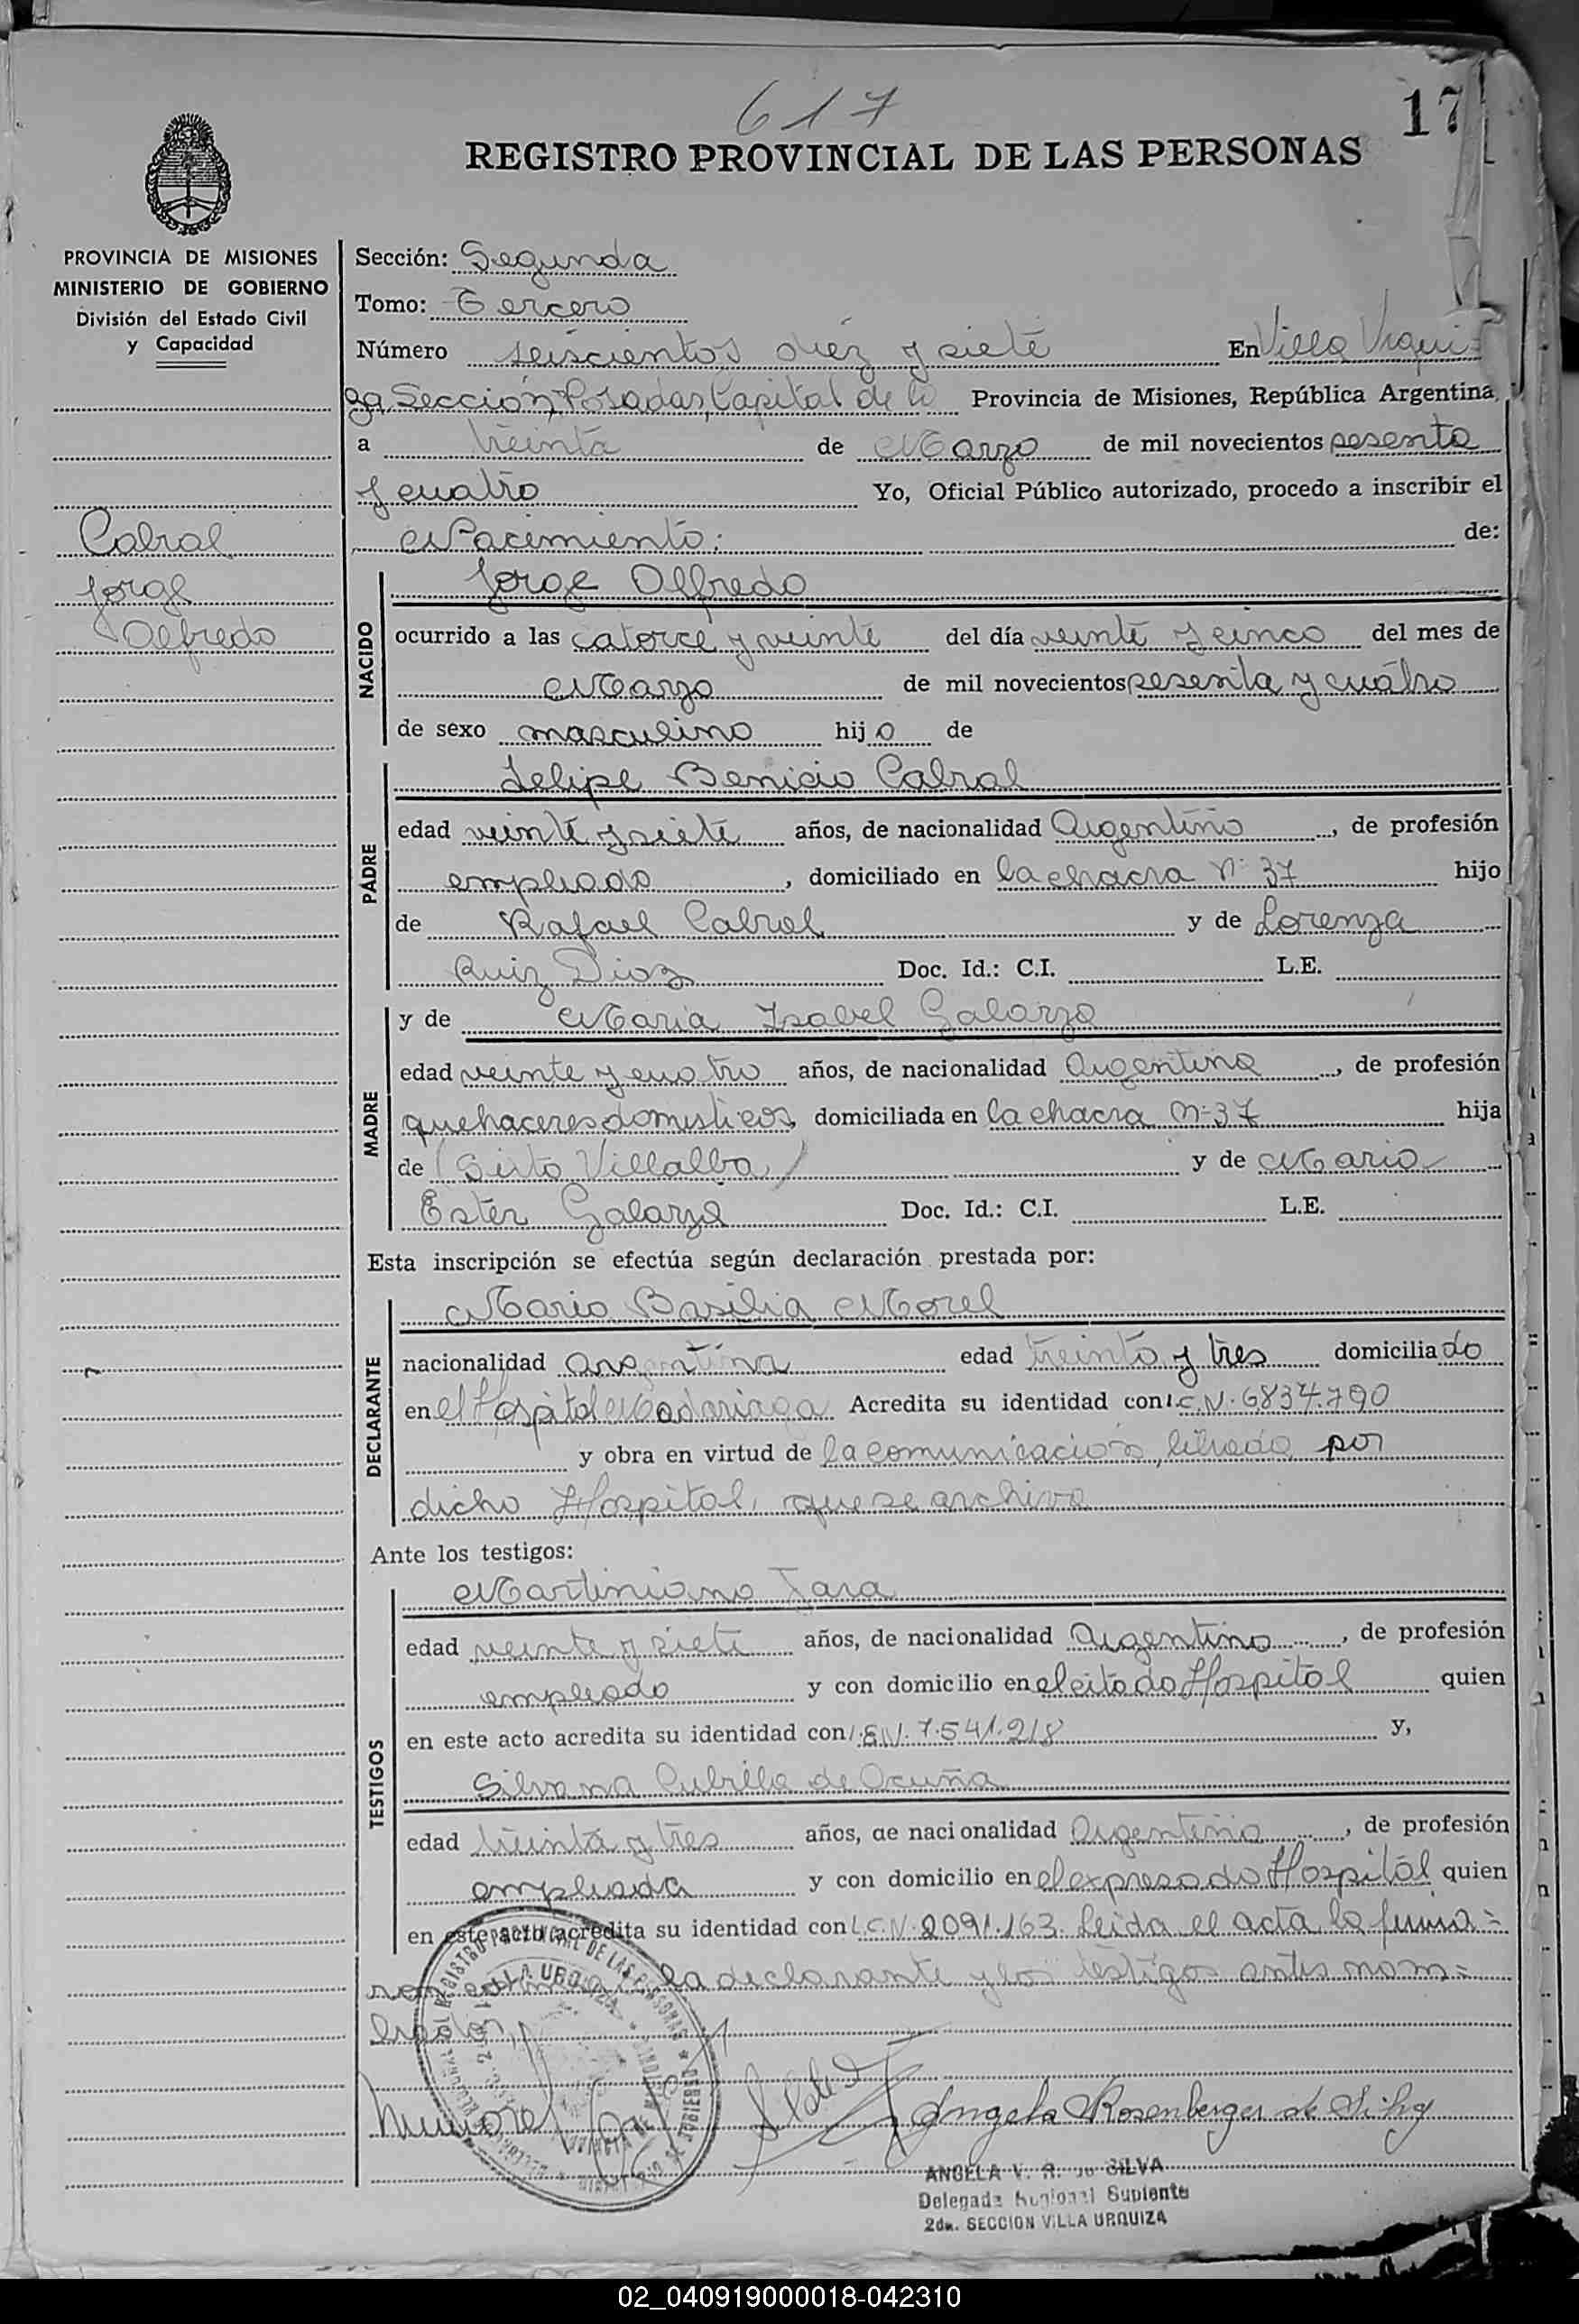 617
17
REGISTRO PROVINCIAL DE LAS PERSONAS
PROVINCIA DE MISIONES
MINISTERIO DE GOBIERNO
División del Estado Civil
y Capacidad
Cabral
Jorge
Alfredo
Sección: Segunda
Tomo: Tercero
Número seiscientos diez y siete En Villa Urqui=
za Sección, Posadas, Capital de la Provincia de Misiones, República Argentina,
a treinta de Marzo de mil novecientos sesenta
y cuatro Yo, Oficial Público autorizado, procedo a inscribir el
Nacimiento: de:
NACIDO
Jorge Alfredo
ocurrido a las catorce y veinte del día veinte y cinco del mes de
Marzo de mil novecientos sesenta y cuatro
de sexo masculino hijo de
PADRE
Felipe Benicio Cabral
edad veinte y siete años, de nacionalidad Argentino, de profesión
empleado, domiciliado en la chacra Nº 37 hijo
de Rafael Cabral y de Lorenza
Ruiz Diaz Doc. Id.: C.I. L.E.
MADRE
y de Maria Isabel Galarza
edad veinte y cuatro años, de nacionalidad Argentina, de profesión
quehaceres domesticos, domiciliada en la chacra Nº 37 hija
de (Sixto Villalba) y de Maria
Ester Galarza Doc. Id.: C.I. L.E.
Esta inscripción se efectúa según declaración prestada por:
DECLARANTE
Maria Basilia Morel
nacionalidad argentina edad treinta y tres domiciliado
en el Hospital Madariaga Acredita su identidad con L.C.Nº 6834.790
y obra en virtud de la comunicacion, librada por
dicho Hospital, que se archiva
Ante los testigos:
TESTIGOS
Martiniano Jara
edad veinte y siete años, de nacionalidad Argentino, de profesión
empleado y con domicilio en el citado Hospital quien
en este acto acredita su identidad con L.E.Nº 7.541.218 y,
Silvana Cubilla de Acuña
edad treinta y tres años, de nacionalidad Argentina, de profesión
empleada y con domicilio en el expresado Hospital quien
en este acto acredita su identidad con L.C.Nº 2091.163. Leida el acta, la firma=
ron la declarante y los testigos antes nom=
brados,
Angela Rosenberger de Silva
ANGELA V. R. de SILVA
Delegada Regional Suplente
2da. SECCION VILLA URQUIZA
02_040919000018-042310